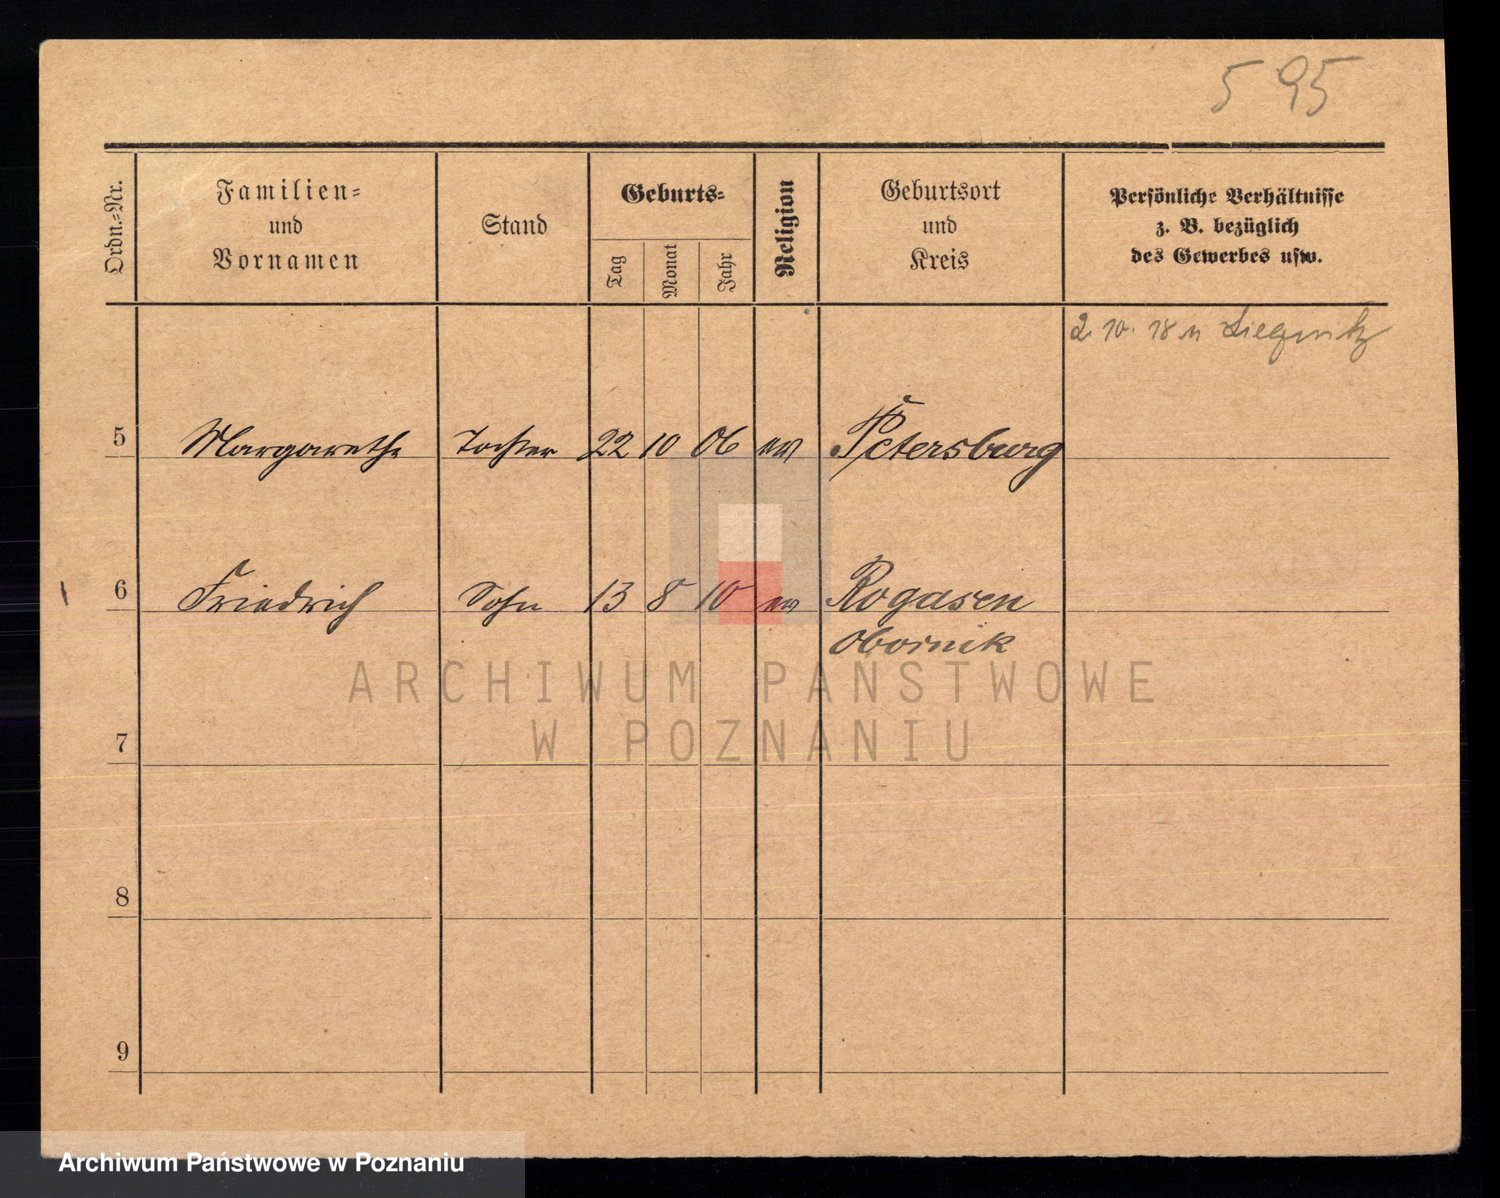 595
Ordn.-Nr.
Familien-
und
Vornamen
Stand
Geburts-
Tag
Monat
Jahr
Religion
Geburtsort
und
Kreis
Persönliche Verhältnisse
z. B. bezüglich
des Gewerbes usw.
2. 10. 18 n Liegnitz
5 Margarethe Tochter 22 10 06 ev Petersburg
6 Friedrich Sohn 13 8 10 ev Rogasen
Obornik
ARCHIWUM PAŃSTWOWE
W POZNANIU
7
8
9
Archiwum Państwowe w Poznaniu